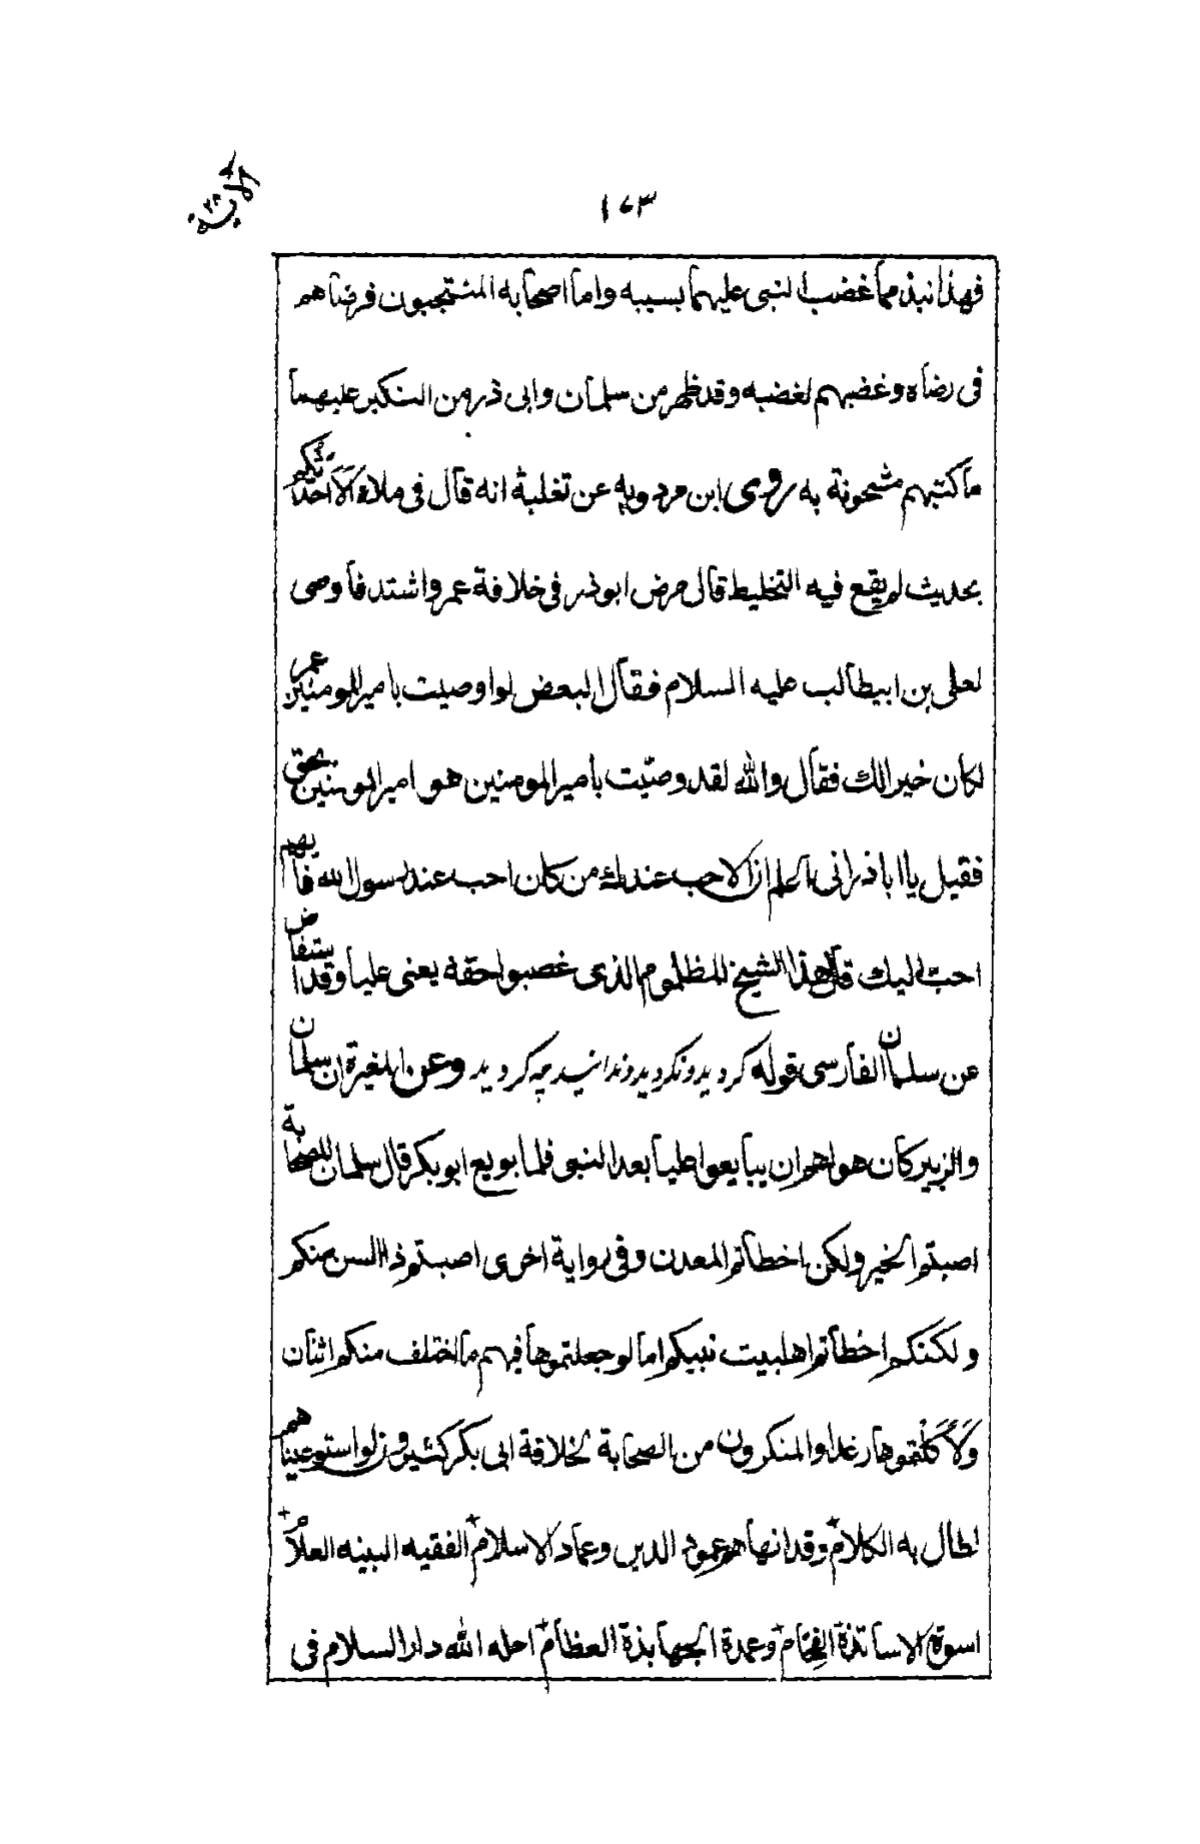 ١٧٣
الآية ٢٨
فهذا نبذ مما غضب النبى عليهما بسببه واما اصحابه المنتجبون فرضاهم
فى رضاه وغضبهم لغضبه وقد ظهر من سلمان وابى ذر من النكير عليهما
ما كتبهم مشحونة به روى ابن مردويه عن تغلبة انه قال فى ملاء الا احدثكم
بحديث لم يقع فيه التخليط قال مرض ابوذر فى خلافة عمر واشتد فاوصى
لعلى بن ابيطالب عليه السلام فقال البعض لو اوصيت بامير المومنين عمر
لكان خيرا لك فقال والله لقد وصّيت بامير المومنين هو امير المومنين بحق
فقيل يا اباذر انى اعلم ان الاحب عندك من كان احب عند رسول الله فايهم
احبّ اليك قال هذا الشيخ المظلوم الذى غصبوا حقه يعنى عليا وقد استفاض
عن سلمان الفارسى بقوله كرديد ونكرديد وندانيد چه كرديد وعن المغيرة ان سلمان
والزبير كان هواهم ان يبايعوا عليا بعد النبى فلما بويع ابوبكر قال سلمان للصحابة
اصبتم الخير ولكن اخطاتم المعدن وفى رواية اخرى اصبتم ذا السن منكم
ولكنكم اخطاتم اهلبيت نبيكم اما لو جعلتموها فيهم ما اختلف منكم اثنان
ولأكلتموها رغدا والمنكرون من الصحابة لخلافة ابى بكر كثيرون لو استوعيناهم
لطال به الكلام وقد انهاهم عمود الدين وعماد الاسلام الفقيه النبيه العلام
اسوة الاساتذة الفخام وعمدة الجهابذة العظام احله الله دار السلام فى